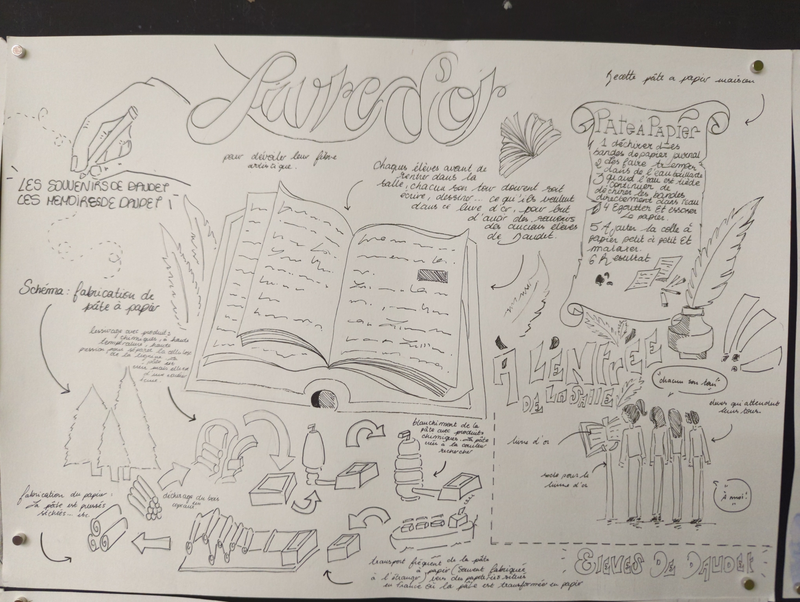 Livre d'or
Recette pâte a papier maison
pour dévoiler leur fibre
artistique.
Chaques élèves avant de
rentrer dans la
salle, chacun son tour doivent soit
écrire, dessiner... ce qu'ils veulent
dans ce livre d'or. pour but
d'avoir des souvenirs
des anciens élèves
de Daudet.
PATE À PAPIER
1 déchirer des
bandes de papier journal
2 les faire tremper
dans de l'eau bouillante
3 quand l'eau est tiède
continuer de
déchirer les bandes
directement dans l'eau
4 Egoutter et essorer
le papier.
5 Ajouter la colle à
papier petit à petit Et
malaxer.
6 Résultat
LES SOUVENIRS DE DAUDET
LES MEMOIRES DE DAUDET !
Schéma : fabrication de
pâte à papier
lessivage avec produits
chimiques, à haute
température, haute
pression pour
A L'ENTREE
DE LA SALLE
"chacun son tour"
élèves qui attendent
leurs tours.
livre d'or
socle pour le
livre d'or
"à moi!"
blanchiment de la
pâte avec produits
chimiques. La pâte
à la couleur
recherchée
déchirage du bois
en copeaux
fabrication du papier :
La pâte est pressée
séchées... etc.
transport fréquent de la pâte
à papier (souvent fabriquée
à l'étranger) vers des papeteries situés
en france où la pâte est transformée en papier
ELEVES DE DAUDET